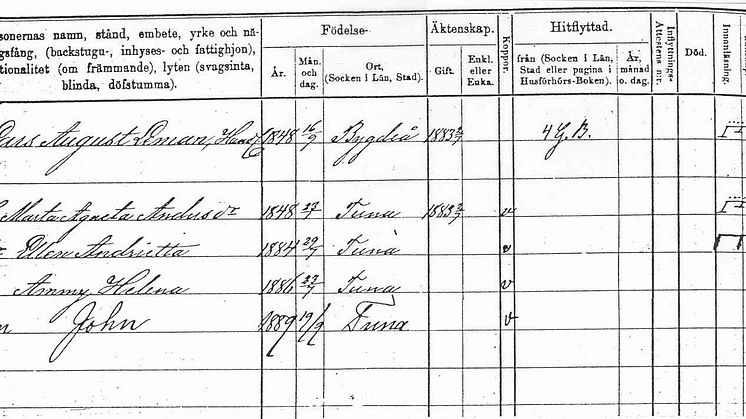 sonernas namn, stånd, embete, yrke och nä- Födelse- Äktenskap. Koppor. Hitflyttad. Inflyttnings-Attestens nr. Död. Innanläsning.
gsfång, (backstugu-, inhyses- och fattighjon),
tionalitet (om främmande), lyten (svagsinta,
blinda, döfstumma).
År. Mån. och dag. Ort, (Socken i Län, Stad). Gift. Enkl. eller Enka. från (Socken i Län, Stad eller pagina i Husförhörs-Boken). År, månad o. dag.
Lars August Leman, 1848 16/9 Bygdeå 1883 2/7 4 G.B.
Marta Agneta Andersdr 1848 27/7 Tuna 1883 2/7 v
Ellen Andrietta 1884 29/7 Tuna v
Ammy Helena 1886 27/7 Tuna v
John 1889 19/9 Tuna v